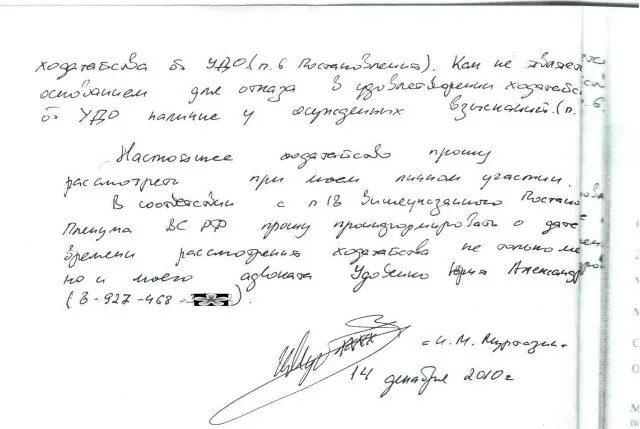 ходатайства об УДО (п. 6 Постановления). Как не является
основанием для отказа в удовлетворении ходатайс
об УДО наличие у осужденных взысканий. (п. 6
Настоящее ходатайство прошу
рассмотреть при моем личном участии.
В соответствии с п 18 вышеуказанного Постано
Пленума ВС РФ прошу проинформировать о дате
времени рассмотрения ходатайства не только ме
но и моего адвоката Удовенко Юрия Александр
(8-927-468-
И. М. Муртазин
14 декабря 2010 г